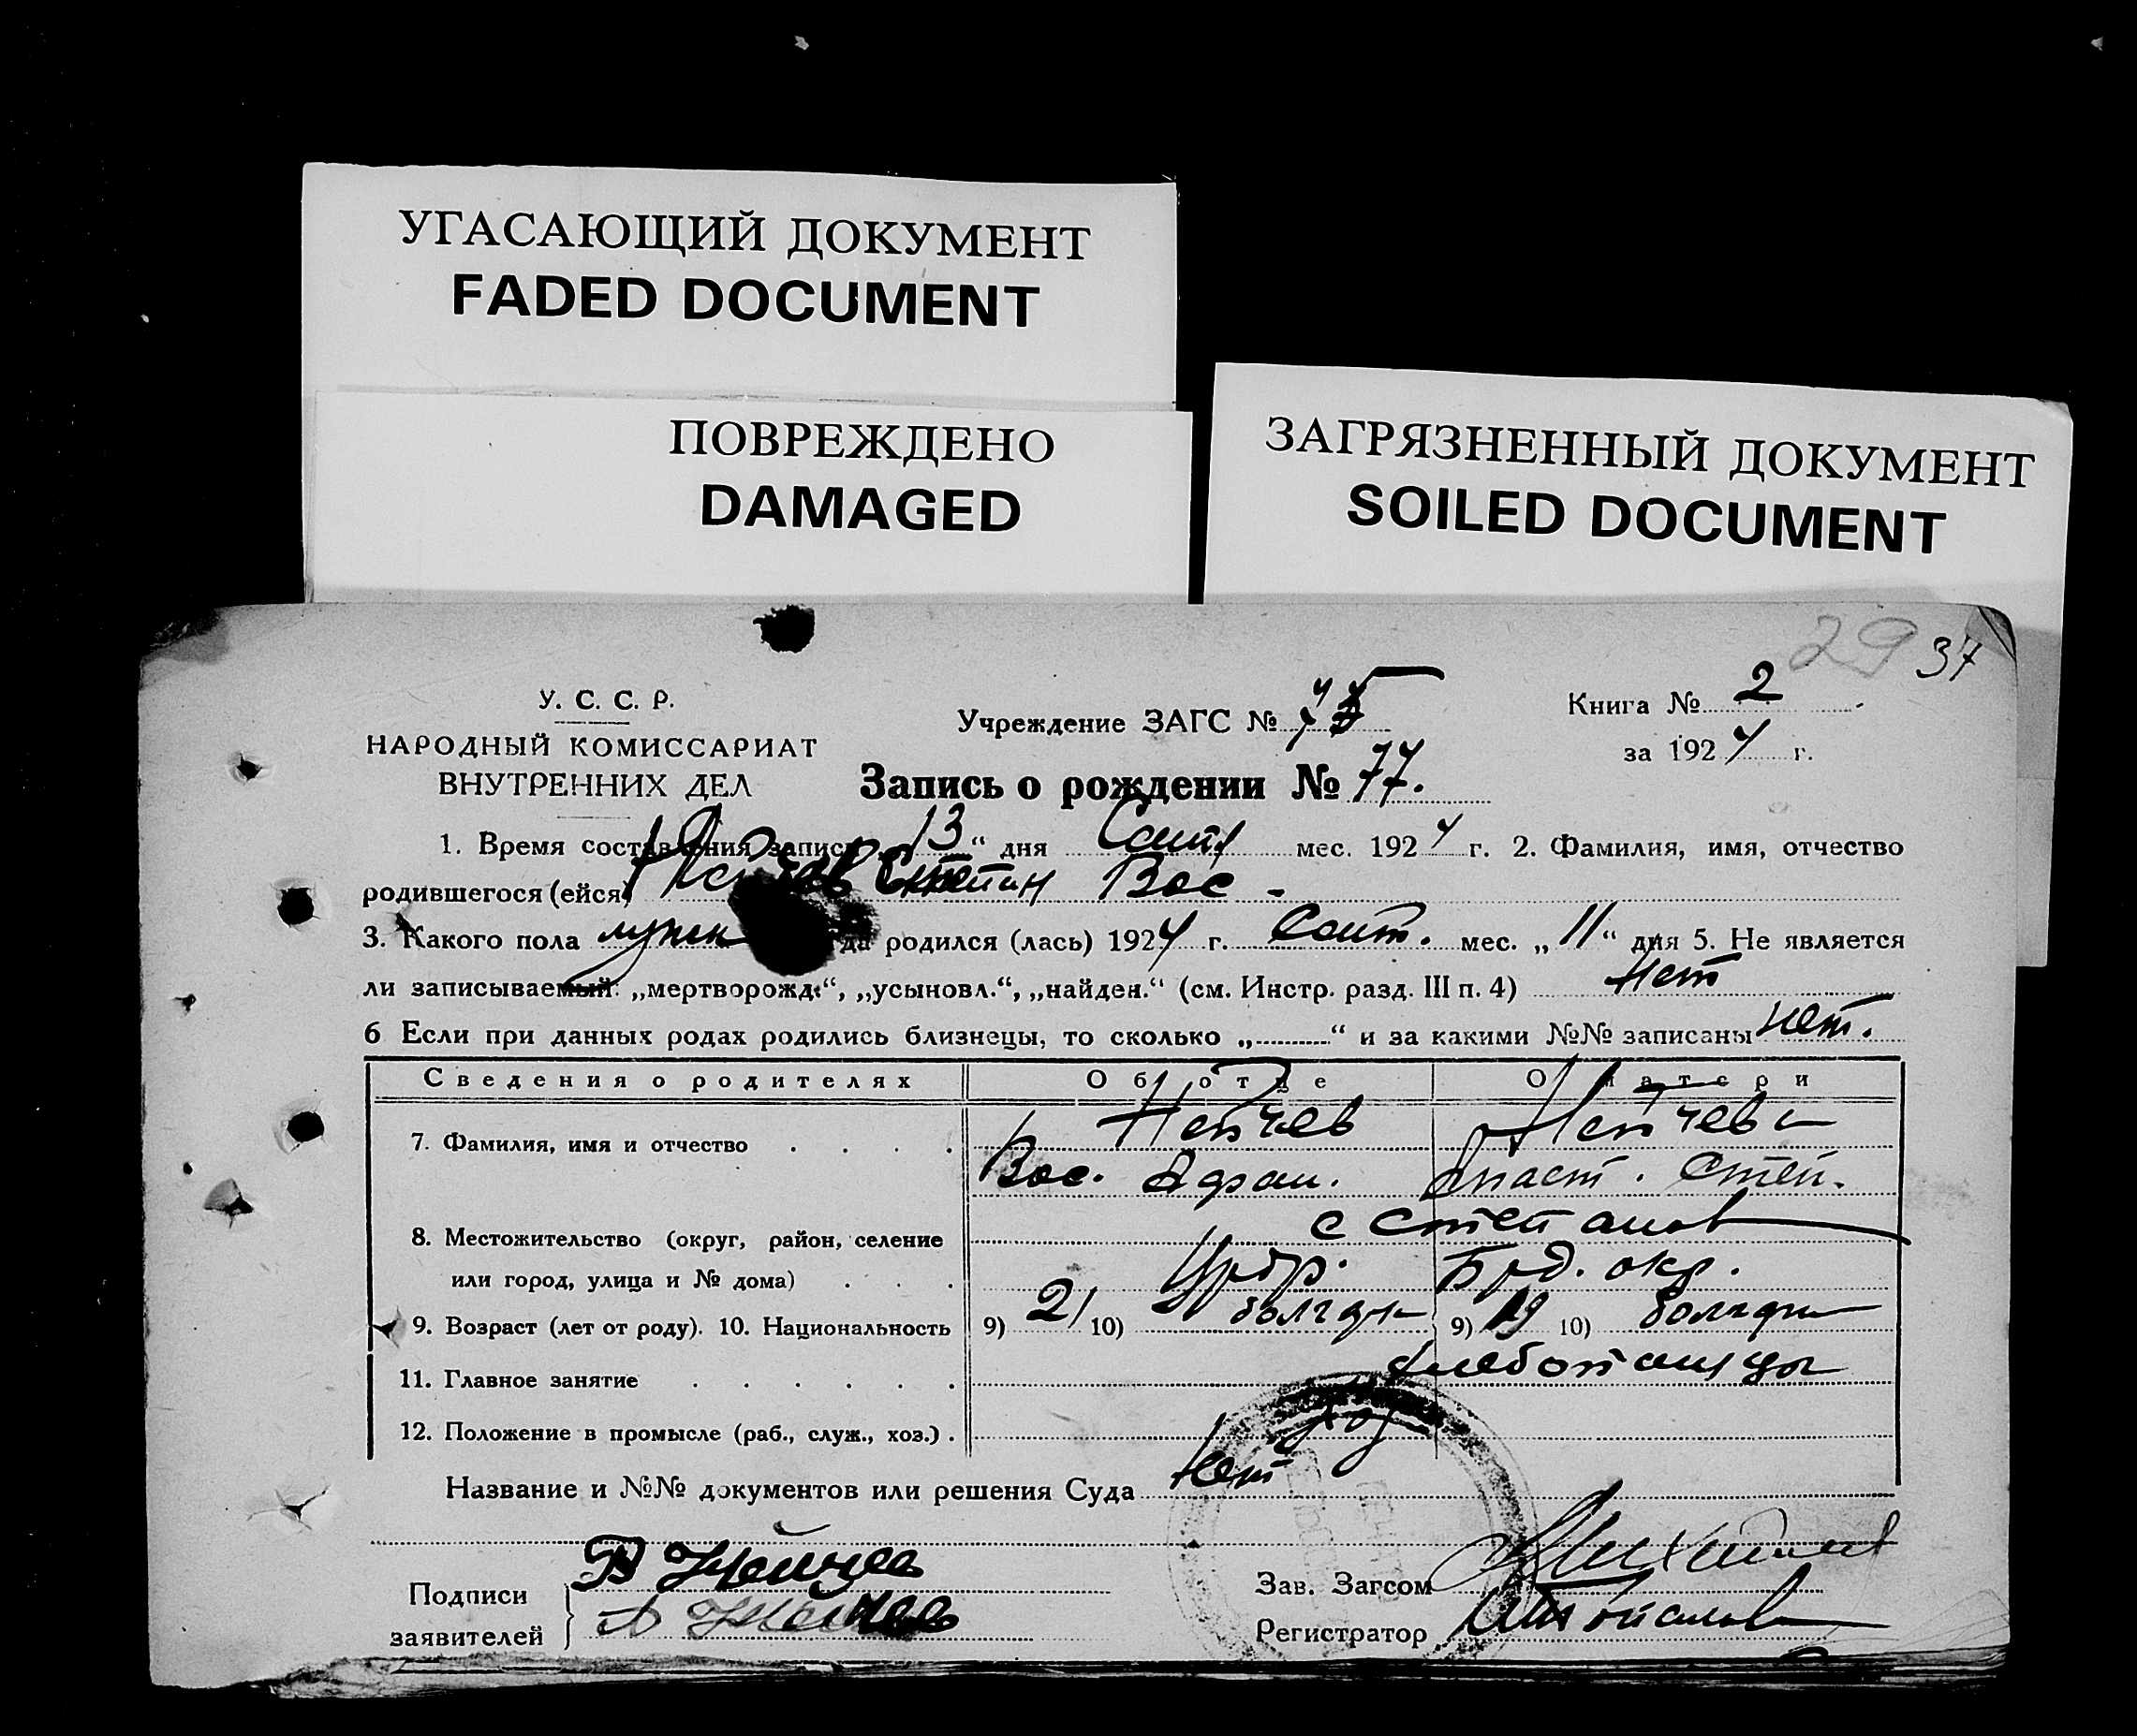 УГАСАЮЩИЙ ДОКУМЕНТ
FADED DOCUMENT
ПОВРЕЖДЕНО
DAMAGED
ЗАГРЯЗНЕННЫЙ ДОКУМЕНТ
SOILED DOCUMENT
29 37
У. С. С. Р.
НАРОДНЫЙ КОМИССАРИАТ
ВНУТРЕННИХ ДЕЛ
Учреждение ЗАГС №
Книга № 2
за 1924 г.
Запись о рождении № 77.
1. Время составления записи 13 “ дня Сент мес. 1924 г. 2. Фамилия, имя, отчество
родившегося (ейся) Степан Вас -
3. Какого пола мужск да родился (лась) 1924 г. Сент. мес. „ 11 “ дня 5. Не является
ли записываемый: „мертворожд.“, „усыновл.“, „найден.“ (см. Инстр. разд. III п. 4) Нет
6 Если при данных родах родились близнецы, то сколько „ “ и за какими №№ записаны нет.
Сведения о родителях Об отце О матери
7. Фамилия, имя и отчество Нейчев Нейчева
Вас. Афан. Анаст. Степ.
8. Местожительство (округ, район, селение с Степановка
или город, улица и № дома) Брд. окр.
9. Возраст (лет от роду). 10. Национальность 9) 21 10) болгар 9) 19 10) болгар
11. Главное занятие хлебопашцы
12. Положение в промысле (раб., служ., хоз.) . хоз
Название и №№ документов или решения Суда Нет
Подписи В Нейчев
заявителей А Нейчев
Зав. Загсом
Регистратор